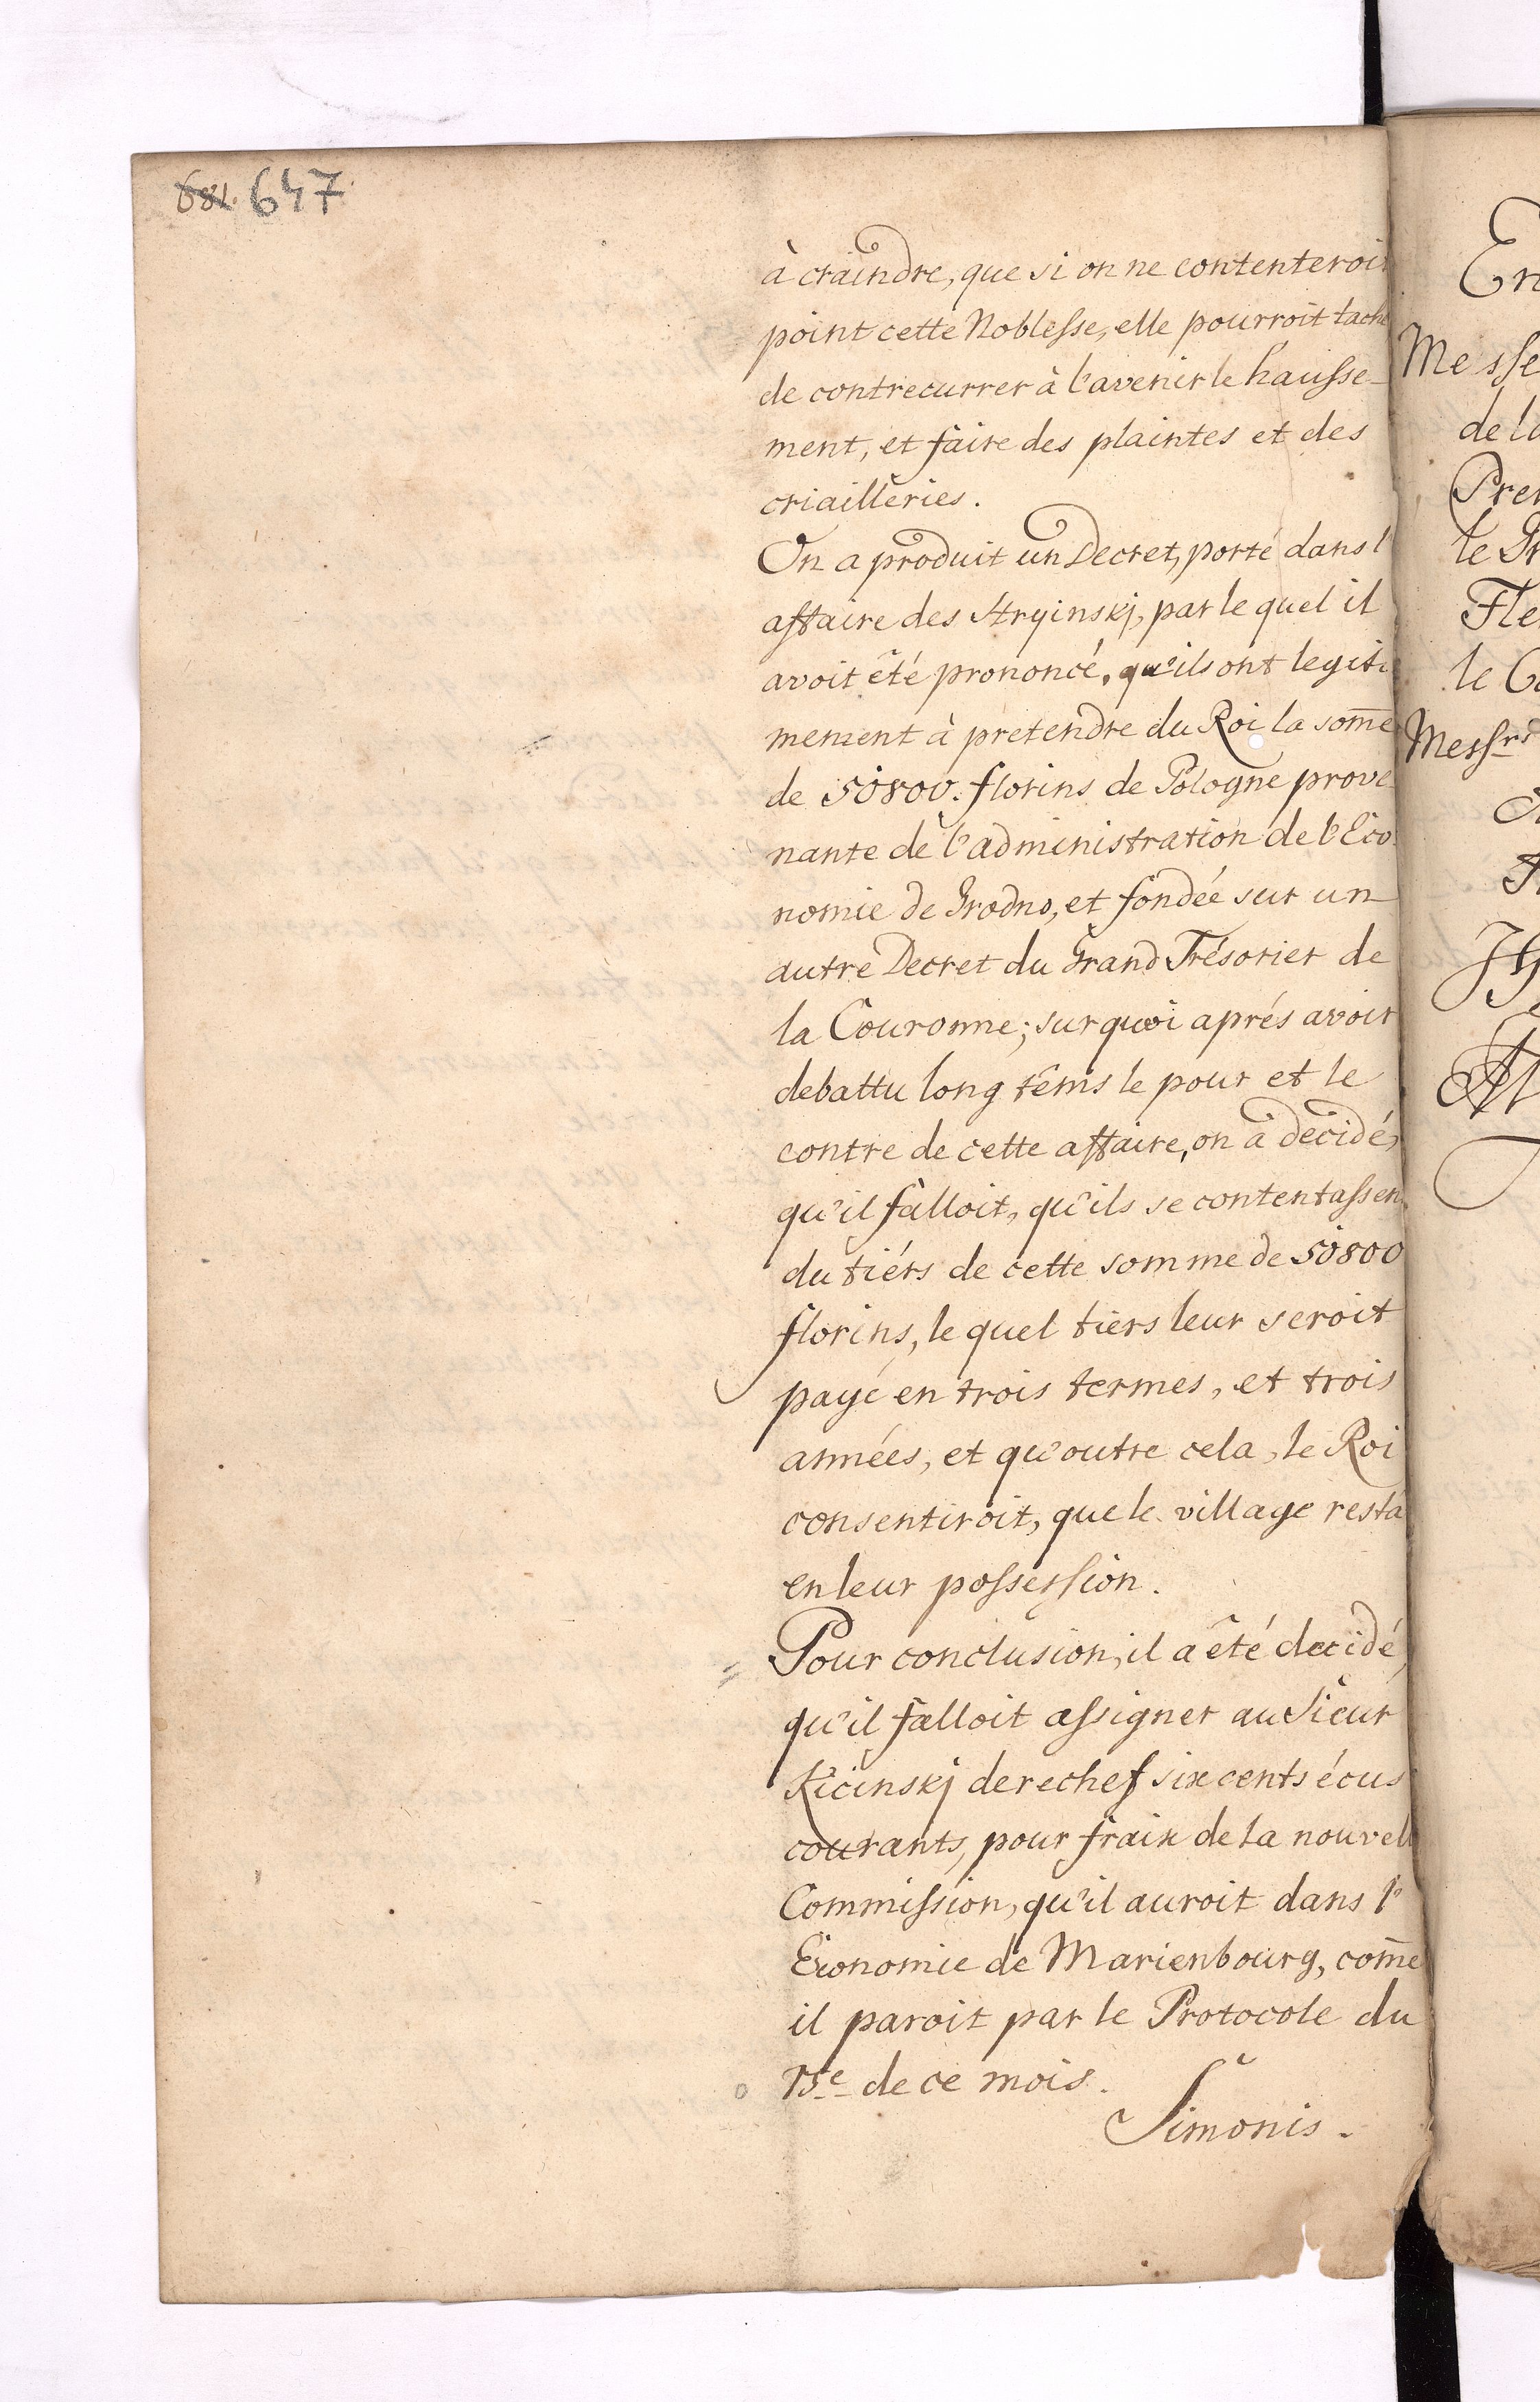 681. 647
à craindre, que si on ne contenteroit
point cette Noblesse, elle pourroit tache
de contrecurrer à l'avenir le hausse-
ment, et faire des plaintes et des
criailleries.
On a produit un Decret, porté dans l'
affaire des Stryinskj, par le quel il
avoit êté prononcé, qu'ils ont legiti
mement à pretendre du Roi la som̄e
de 50800. florins de Pologne prove-
nante de l'administration de l'Eco-
nomie de Grodno, et fondée sur un
autre Decret du Grand Trésorier de
la Couronne; sur quoi aprés avoir
debattu long têms le pour et le
contre de cette affaire, on a decidé,
qu'il falloit, qu'ils se contentassen
du tiérs de cette somme de 50800
florins, le quel tiers leur seroit
payé en trois termes, et trois
années, et qu'outre cela, le Roi
consentiroit, que le village resta
en leur possession.
Pour conclusion, il a êté decidé,
qu'il falloit assigner au Sieur
Kicinskj derechef six cents écus
courants, pour fraix de la nouvel
Commission, qu'il auroit dans l'
Economie de Marienbourg, com̄e
il paroit par le Protocole du
15e de ce mois.
Simonis.
En
Messe
de la
Pre
le Gr
Fle
le C
Messrs